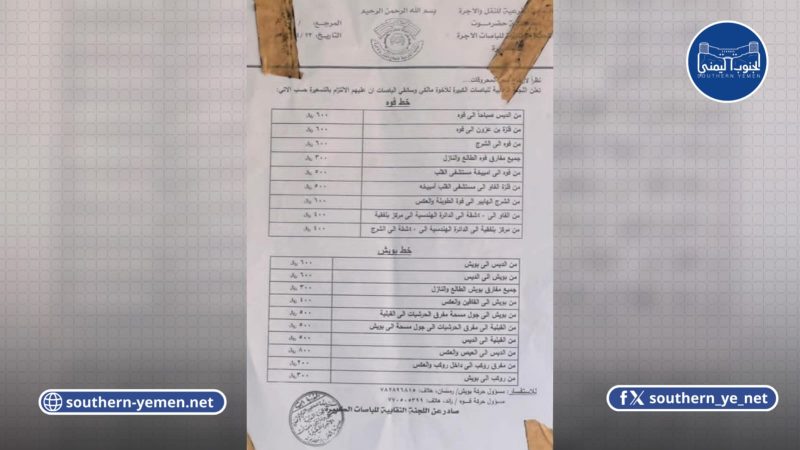 بسم الله الرحمن الرحيم
للنقل والاجرة
حضرموت
للباصات الاجرة
المرجع:
التاريخ:
الجنوب اليمني
SOUTHERN YEMEN
المحروقات...
تعلن اللجنة النقابية للباصات الكبيرة للاخوة مالكي وسائقي الباصات ان عليهم الالتزام بالتسعيرة حسب الاتي:
خط فوه
من الديس صباحا الى فوه ٦٠٠ ريال
من فلزة بن عزون الى فوه ٦٠٠ ريال
من فوه الى الشرج ٦٠٠ ريال
جميع مفارق فوه الطالع والنازل ٣٠٠ ريال
من فوه الى امبيخة مستشفى القلب ٥٠٠ ريال
من فلزة الغاو الى مستشفى القلب امبيخه ٥٠٠ ريال
من الشرج الهايبر الى فوة الطويلة والعكس ٦٠٠ ريال
من الغاو الى ٤٠شقة الى الدائرة الهندسية الى مركز بلفقية ٤٠٠ ريال
من مركز بلفقية الى الدائرة الهندسية الى ٤٠شقة الى الشرج ٤٠٠ ريال
خط بويش
من الديس الى بويش ٦٠٠ ريال
من بويش الى الديس ٦٠٠ ريال
جميع مفارق بويش الطالع والنازل ٣٠٠ ريال
من بويش الى والعكس ٤٠٠ ريال
من بويش الى جول مسحة مفرق الحرشيات الى القبلية ٥٠٠ ريال
من القبلية الى مفرق الحرشيات الى جول مسحة الى بويش ٥٠٠ ريال
من القبلية الى الديس ٥٠٠ ريال
من الديس الى العيص والعكس ٨٠٠ ريال
من مفرق روكب الى داخل روكب والعكس ٢٠٠ ريال
من روكب الى بويش ٣٠٠ ريال
للاستفسار: مسؤول حركة بويش/ رمضان، هاتف:
مسؤول حركة فوه / رائد، هاتف:
صادر عن اللجنة النقابية للباصات
southern-yemen.net
southern_ye_net